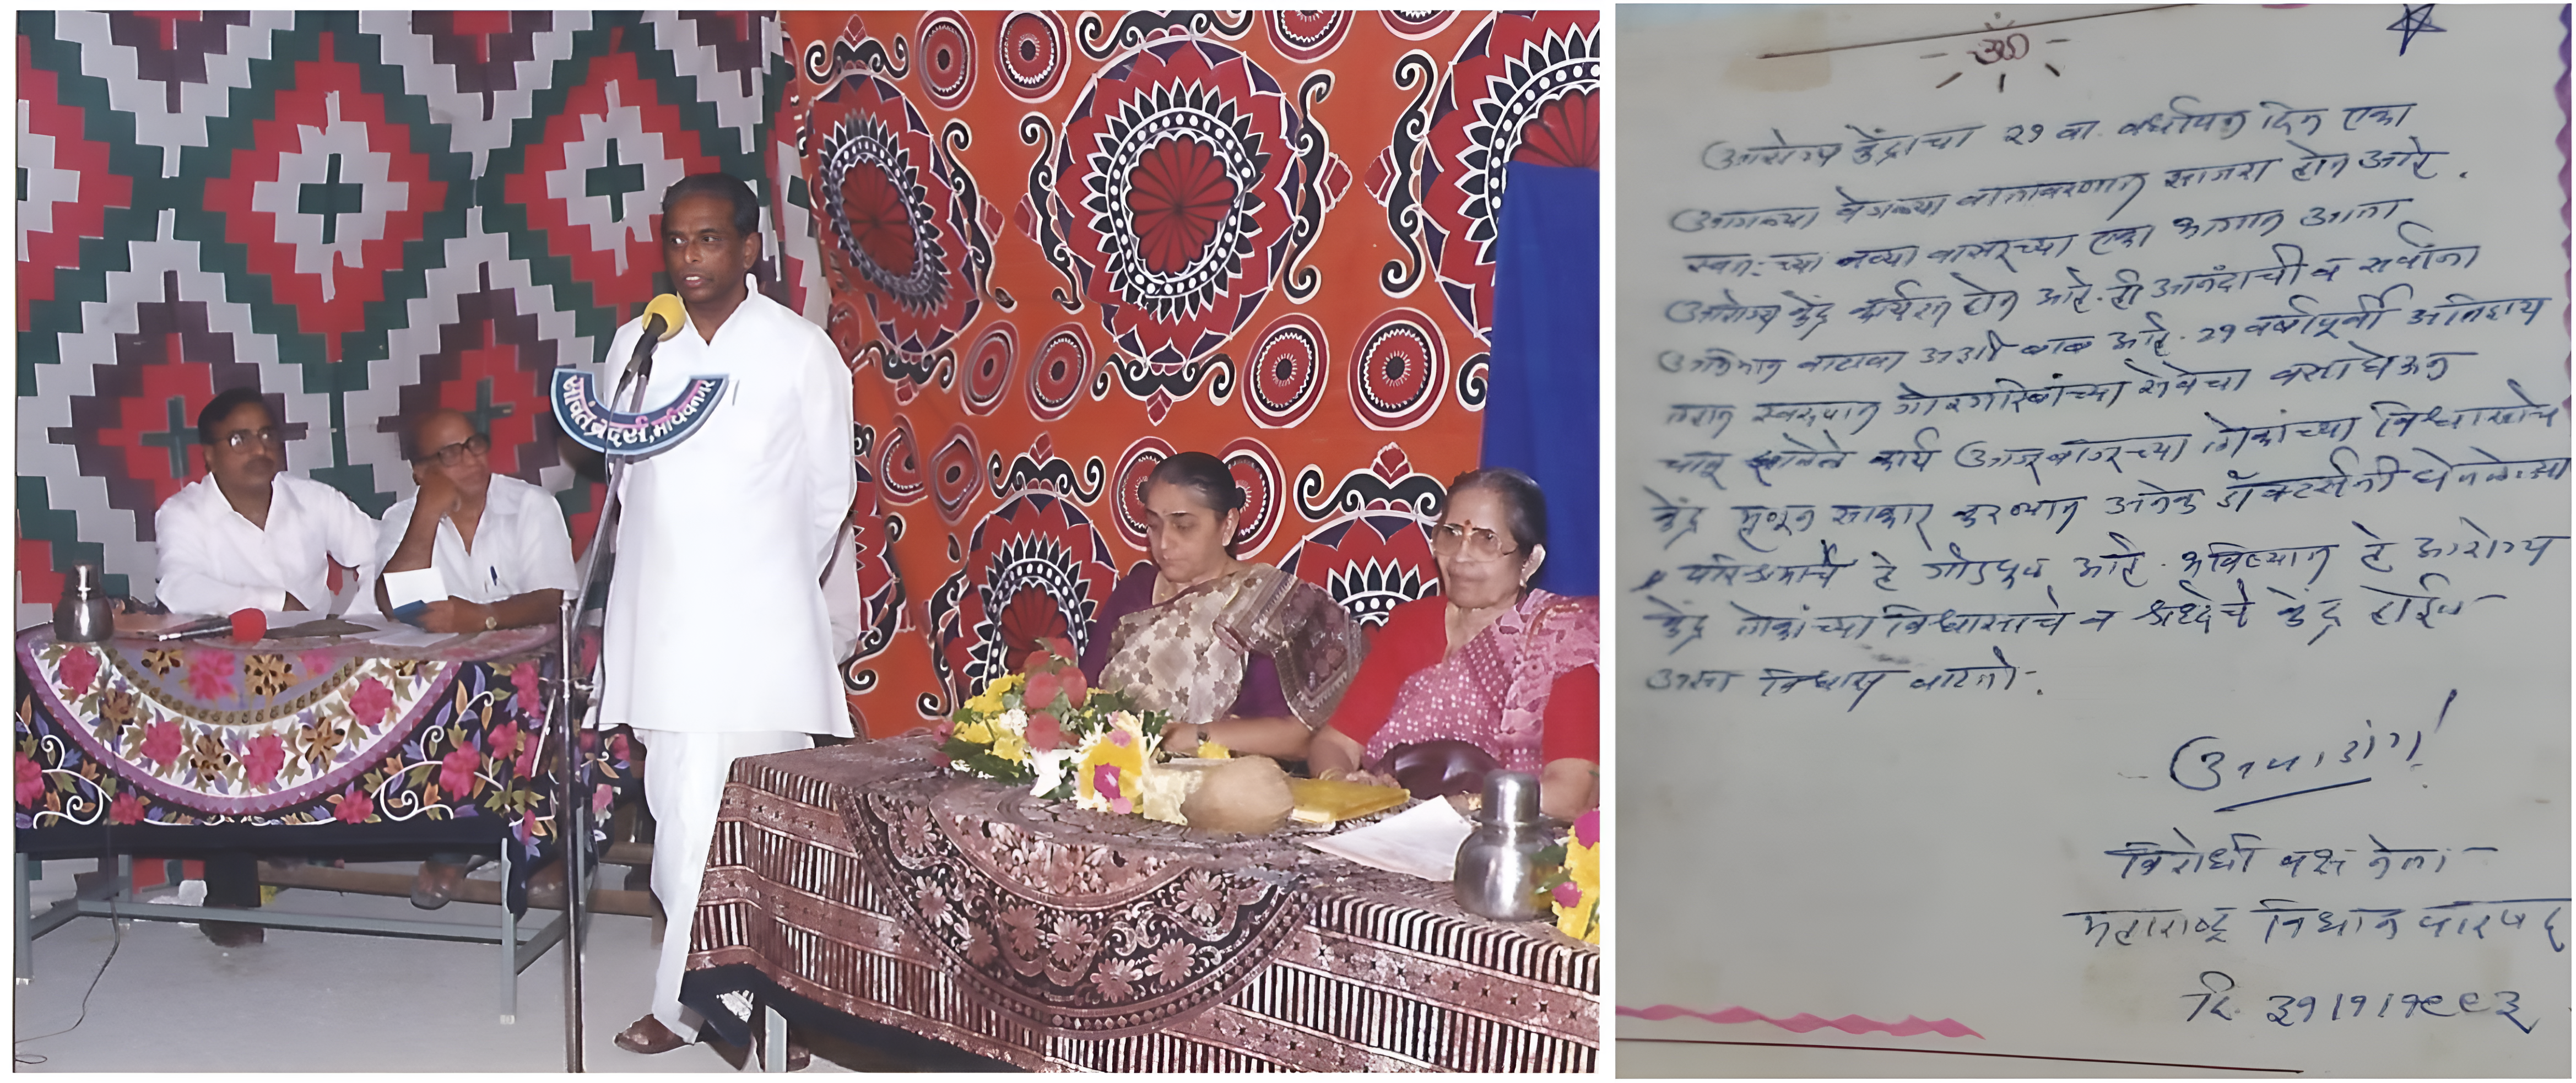 सावंत ब्रदर्स, माधवनगर
ॐ
आरोग्य केंद्राचा २१ वा वर्धापन दिन एका
आगळ्या वेगळ्या वातावरणात साजरा होत आहे.
स्वतःच्या नव्या वास्तूच्या एका भागात आता
आरोग्य केंद्र कार्यरत होत आहे. ही आनंदाची व सर्वांना
अभिमान वाटावा अशी बाब आहे. २१ वर्षापूर्वी अतिशय
लहान स्वरुपात गोरगरिबांच्या सेवेचा वसा घेऊन
चालू झालेले कार्य आजूबाजूच्या लोकांच्या विश्वासाचे
केंद्र म्हणून साकार करण्यात अनेक डॉक्टर्सनी घेतलेल्या
परिश्रमाचे हे गोडफळ आहे. भविष्यात हे आरोग्य
केंद्र लोकांच्या विश्वासाचे व श्रध्देचे केंद्र होईल
असा विश्वास वाटतो.
विरोधी पक्ष नेता
महाराष्ट्र विधान परिषद
दि. ३१।१।१९९३